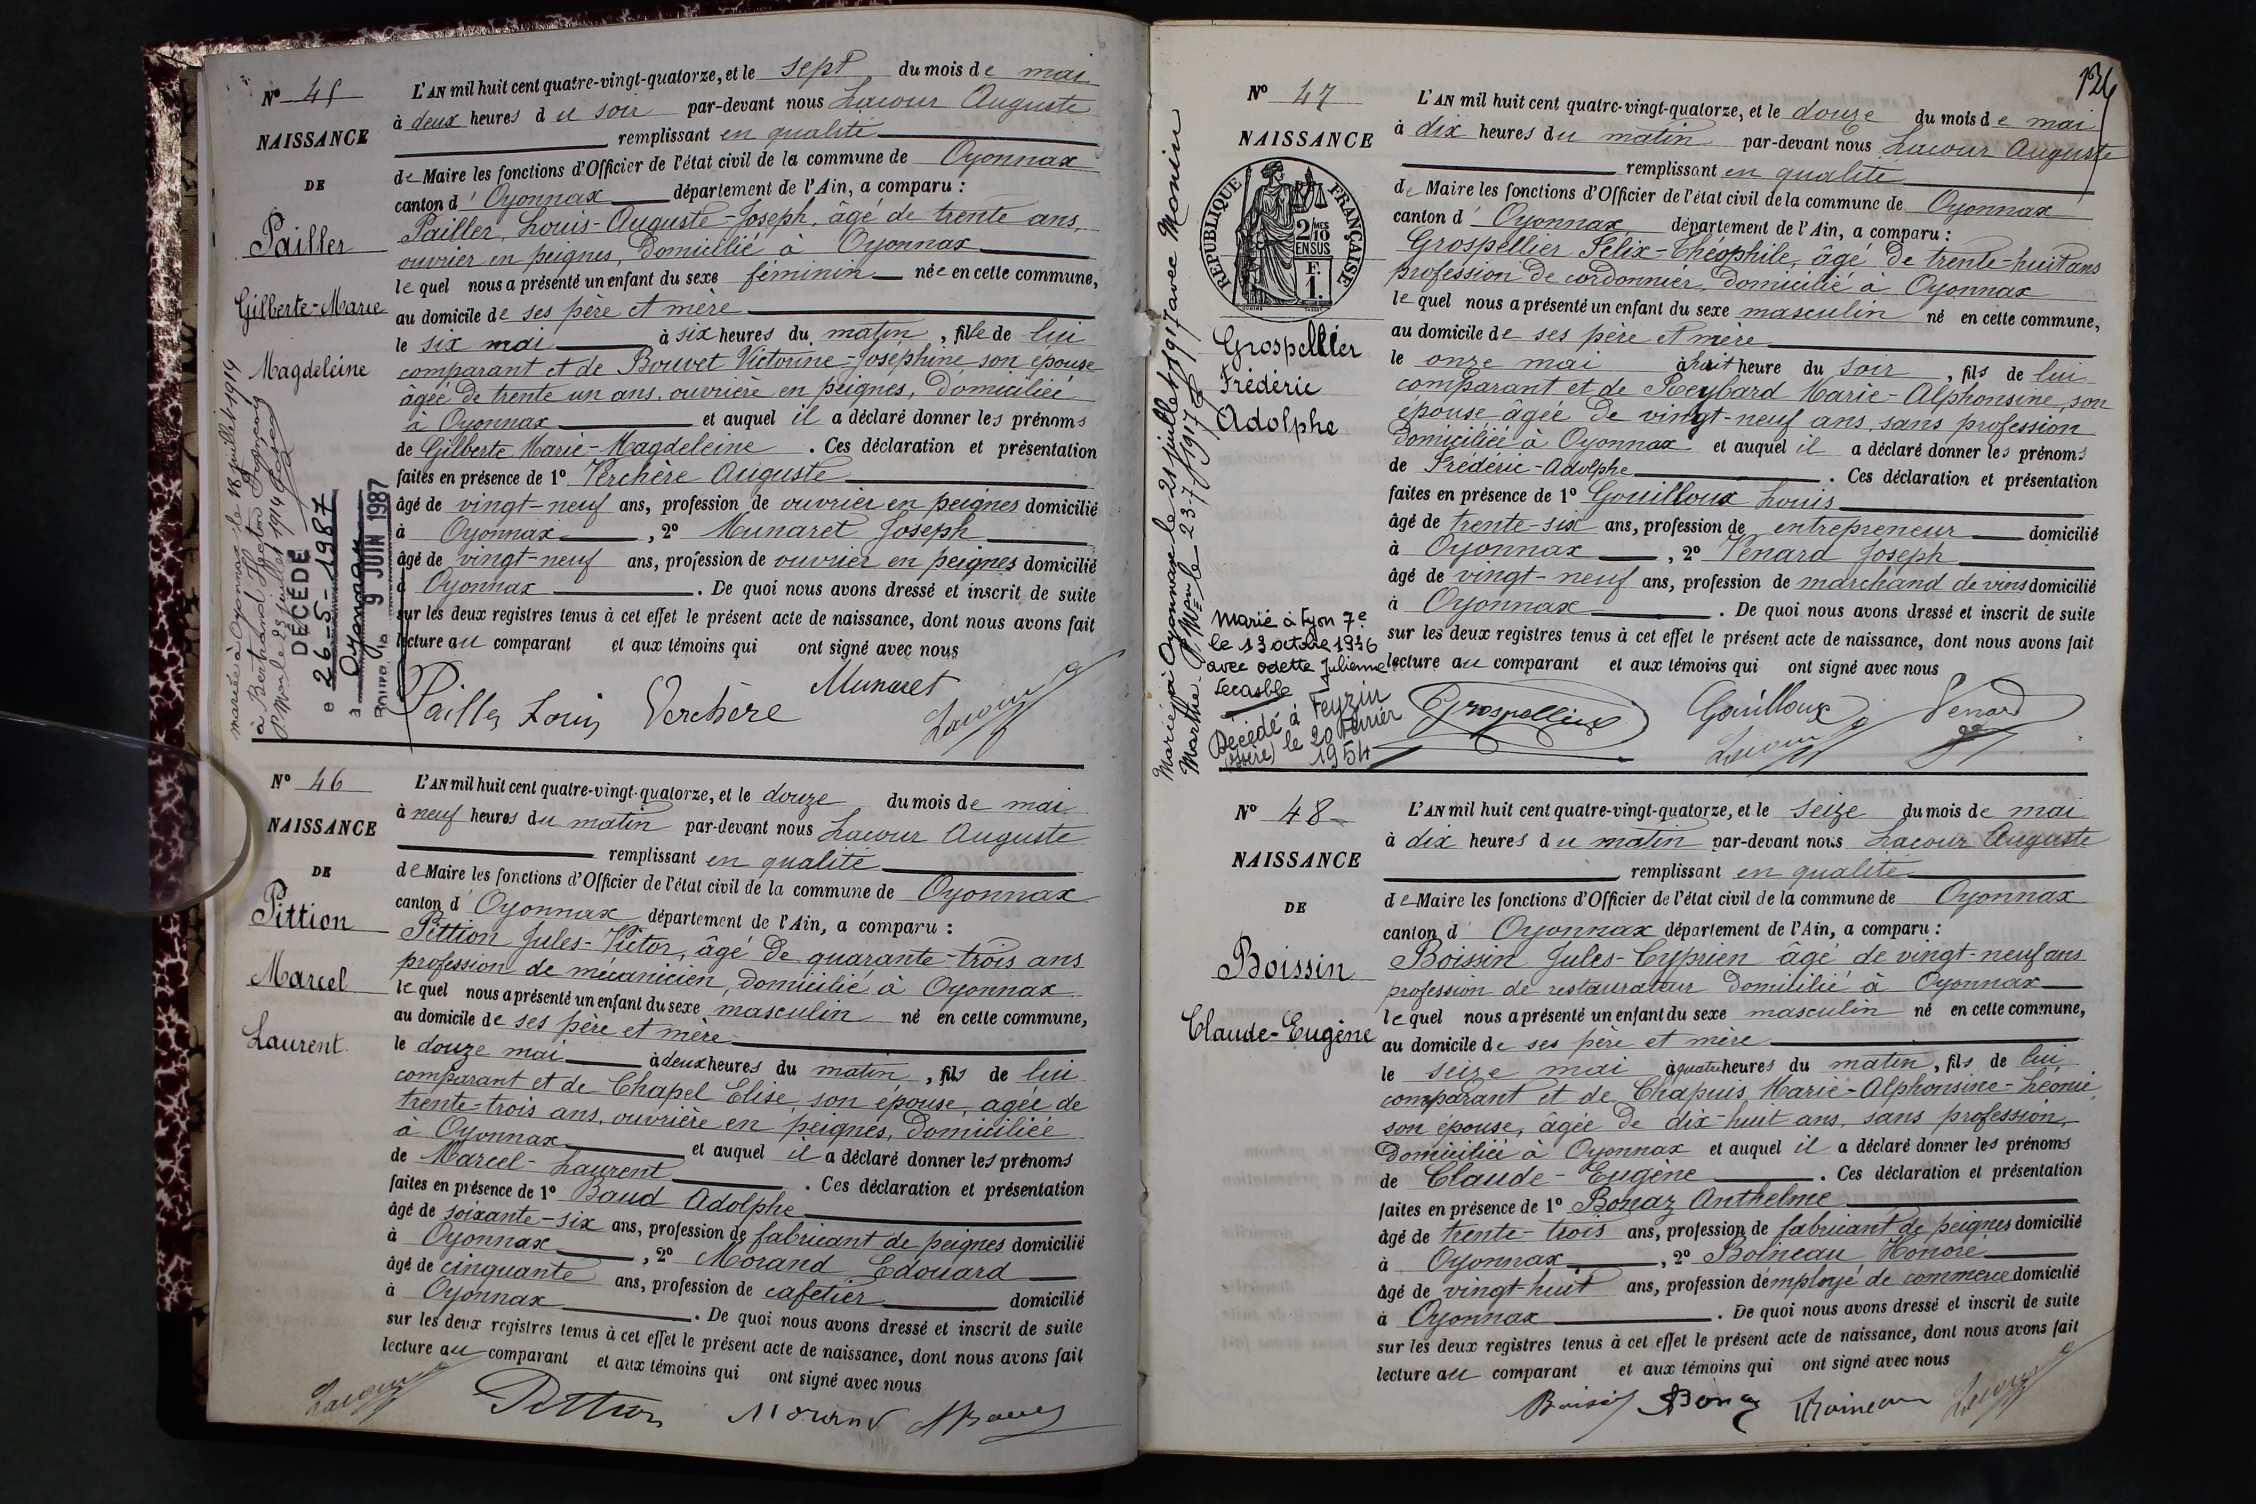 N° 45
NAISSANCE
DE
Pailler
Gilberte-Marie
Magdeleine
mariée à Oyonnax le 18 juillet 1914
à Berthand Hector
DÉCÉDÉ
e 26-5-1987
à Oyonnax
9 JUIN 1987
L'AN mil huit cent quatre-vingt-quatorze, et le sept du mois de mai
à deux heures du soir par-devant nous Lacour Auguste
remplissant en qualité
de Maire les fonctions d'Officier de l'état civil de la commune de Oyonnax
canton d'Oyonnax département de l'Ain, a comparu :
Pailler, Louis-Auguste-Joseph, âgé de trente ans,
ouvrier en peignes, domicilié à Oyonnax
lequel nous a présenté un enfant du sexe féminin née en cette commune,
au domicile de ses père et mère
le six mai à six heures du matin, fille de lui
comparant et de Bouvet Victorine-Joséphine son épouse
âgée de trente un ans, ouvrière en peignes, domiciliée
à Oyonnax et auquel il a déclaré donner les prénoms
de Gilberte Marie-Magdeleine. Ces déclaration et présentation
faites en présence de 1° Verchère Auguste
âgé de vingt-neuf ans, profession de ouvrier en peignes domicilié
à Oyonnax, 2° Munaret Joseph
âgé de vingt-neuf ans, profession de ouvrier en peignes domicilié
à Oyonnax. De quoi nous avons dressé et inscrit de suite
sur les deux registres tenus à cet effet le présent acte de naissance, dont nous avons fait
lecture au comparant et aux témoins qui ont signé avec nous
Pailler Louis Verchère Munaret Lacour
N° 46
NAISSANCE
DE
Pittion
Marcel
Laurent
L'AN mil huit cent quatre-vingt-quatorze, et le douze du mois de mai
à neuf heures du matin par-devant nous Lacour Auguste
remplissant en qualité
de Maire les fonctions d'Officier de l'état civil de la commune de Oyonnax
canton d'Oyonnax département de l'Ain, a comparu :
Pittion Jules-Victor, âgé de quarante-trois ans
profession de mécanicien, domicilié à Oyonnax
lequel nous a présenté un enfant du sexe masculin né en cette commune,
au domicile de ses père et mère
le douze mai à deux heures du matin, fils de lui
comparant et de Chapel Elise, son épouse, agée de
trente-trois ans, ouvrière en peignes, domiciliée
à Oyonnax et auquel il a déclaré donner les prénoms
de Marcel-Laurent. Ces déclaration et présentation
faites en présence de 1° Baud Adolphe
âgé de soixante-six ans, profession de fabricant de peignes domicilié
à Oyonnax, 2° Morand Edouard
âgé de cinquante ans, profession de cafetier domicilié
à Oyonnax. De quoi nous avons dressé et inscrit de suite
sur les deux registres tenus à cet effet le présent acte de naissance, dont nous avons fait
lecture au comparant et aux témoins qui ont signé avec nous
Lacour Pittion Morand Baud
126
N° 47
NAISSANCE
REPUBLIQUE FRANÇAISE
2/10 MES
EN SUS
F.
1.
Grospellier
Frédéric
Adolphe
Marié à Oyonnax le 21 juillet 1917 avec Monin
Marthe
Marié à Lyon 7e
le 13 octobre 1936
avec Odette Julienne
Décédé à Feyzin
(Isère) le 20 Février
1954
L'AN mil huit cent quatre-vingt-quatorze, et le douze du mois de mai
à dix heures du matin par-devant nous Lacour Auguste
remplissant en qualité
de Maire les fonctions d'Officier de l'état civil de la commune de Oyonnax
canton d'Oyonnax département de l'Ain, a comparu :
Grospellier Félix-Théophile, âgé de trente-huit ans
profession de cordonnier, domicilié à Oyonnax
lequel nous a présenté un enfant du sexe masculin né en cette commune,
au domicile de ses père et mère
le onze mai à huit heure du soir, fils de lui
comparant et de Reybard Marie-Alphonsine, son
épouse âgée de vingt-neuf ans, sans profession
domiciliée à Oyonnax et auquel il a déclaré donner les prénoms
de Frédéric-Adolphe. Ces déclaration et présentation
faites en présence de 1° Gouilloux Louis
âgé de trente-six ans, profession de entrepreneur domicilié
à Oyonnax, 2° Venard Joseph
âgé de vingt-neuf ans, profession de marchand de vins domicilié
à Oyonnax. De quoi nous avons dressé et inscrit de suite
sur les deux registres tenus à cet effet le présent acte de naissance, dont nous avons fait
lecture au comparant et aux témoins qui ont signé avec nous
Grospellier Gouilloux Venard
Lacour
N° 48
NAISSANCE
DE
Boissin
Claude-Eugène
L'AN mil huit cent quatre-vingt-quatorze, et le seize du mois de mai
à dix heures du matin par-devant nous Lacour Auguste
remplissant en qualité
de Maire les fonctions d'Officier de l'état civil de la commune de Oyonnax
canton d'Oyonnax département de l'Ain, a comparu :
Boissin Jules-Cyprien âgé de vingt-neuf ans
profession de restaurateur domicilié à Oyonnax
lequel nous a présenté un enfant du sexe masculin né en cette commune,
au domicile de ses père et mère
le seize mai à quatre heures du matin, fils de lui
comparant et de Chapuis Marie-Alphonsine-Léonie,
son épouse, âgée de dix-huit ans, sans profession,
domiciliée à Oyonnax et auquel il a déclaré donner les prénoms
de Claude-Eugène. Ces déclaration et présentation
faites en présence de 1° Bonaz Anthelme
âgé de trente-trois ans, profession de fabricant de peignes domicilié
à Oyonnax, 2° Boineau Honoré
âgé de vingt-huit ans, profession d'employé de commerce domicilié
à Oyonnax. De quoi nous avons dressé et inscrit de suite
sur les deux registres tenus à cet effet le présent acte de naissance, dont nous avons fait
lecture au comparant et aux témoins qui ont signé avec nous
Boissin Bonaz Boineau Lacour